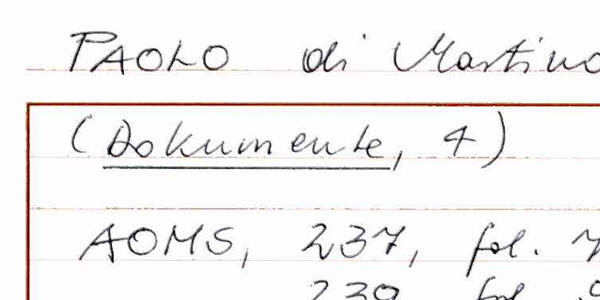 PAOLO di Martino
(Dokumente, 4)
AOMS, 237, fol. 7
239 fol. 9